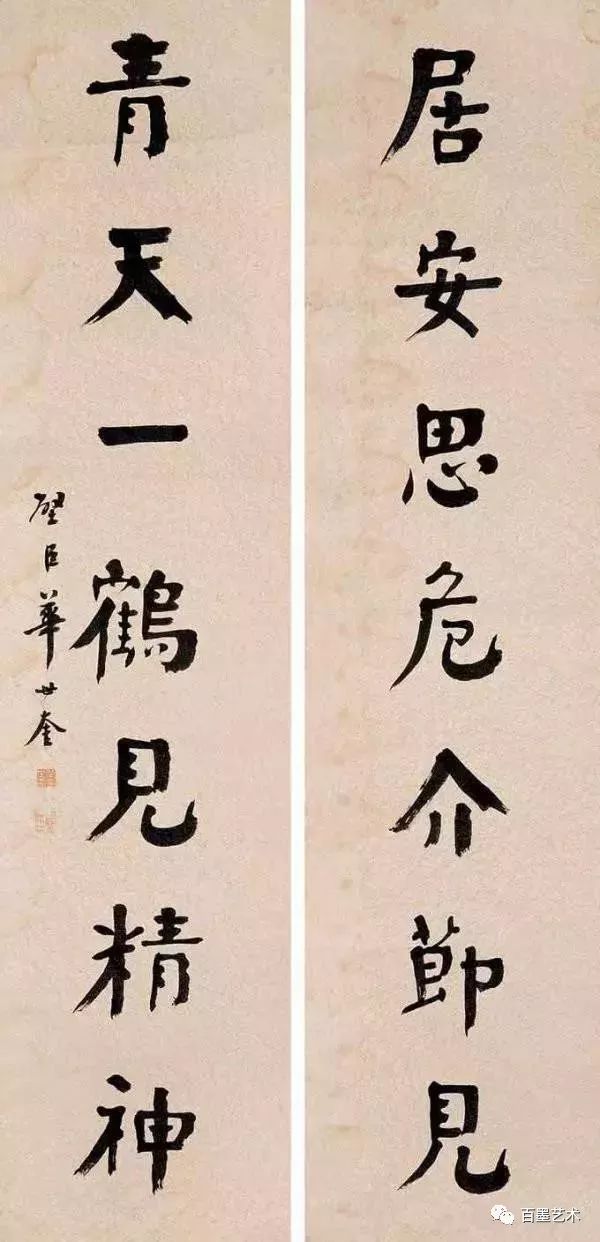 居安思危介節見
青天一鶴見精神
璧臣華世奎
百墨艺术